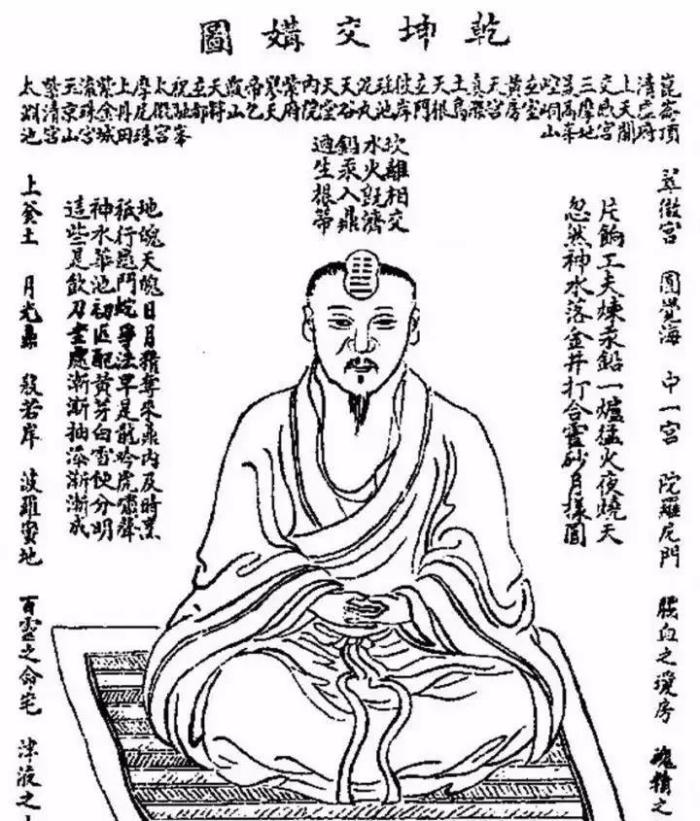 乾坤交媾圖
崑崙頂
清虛府
上天關
交感宮
三摩地
最高峯
崆峒山
玄室
黃房
天宮
真際
天根
玄門
彼岸
瑤池
泥丸
天谷
天堂
內院
紫府
帝乙
甑山
天符
玄都
祝融峯
太微宮
摩尼珠
上丹田
紫金城
流珠宮
玉京山
紫清宮
太淵池
坎離相交
水火既濟
鉛汞入鼎
適生根蒂
翠微宮 圓覺海 中一宮 陀羅尼門 腦血之瓊房 魂精之
片餉工夫煉汞鉛一爐猛火夜燒天
忽然神水落金井打合靈砂月樣圓
地魄天魄日月精奪來鼎內及時烹
祇行龜鬥蛇爭法早是龍吟虎嘯聲
神水華池初匹配黃芽白雪便分明
這些是飲刀圭處漸漸抽添漸漸成
上釜土 月光鼎 般若岸 波羅蜜地 百靈之命宅 津液之